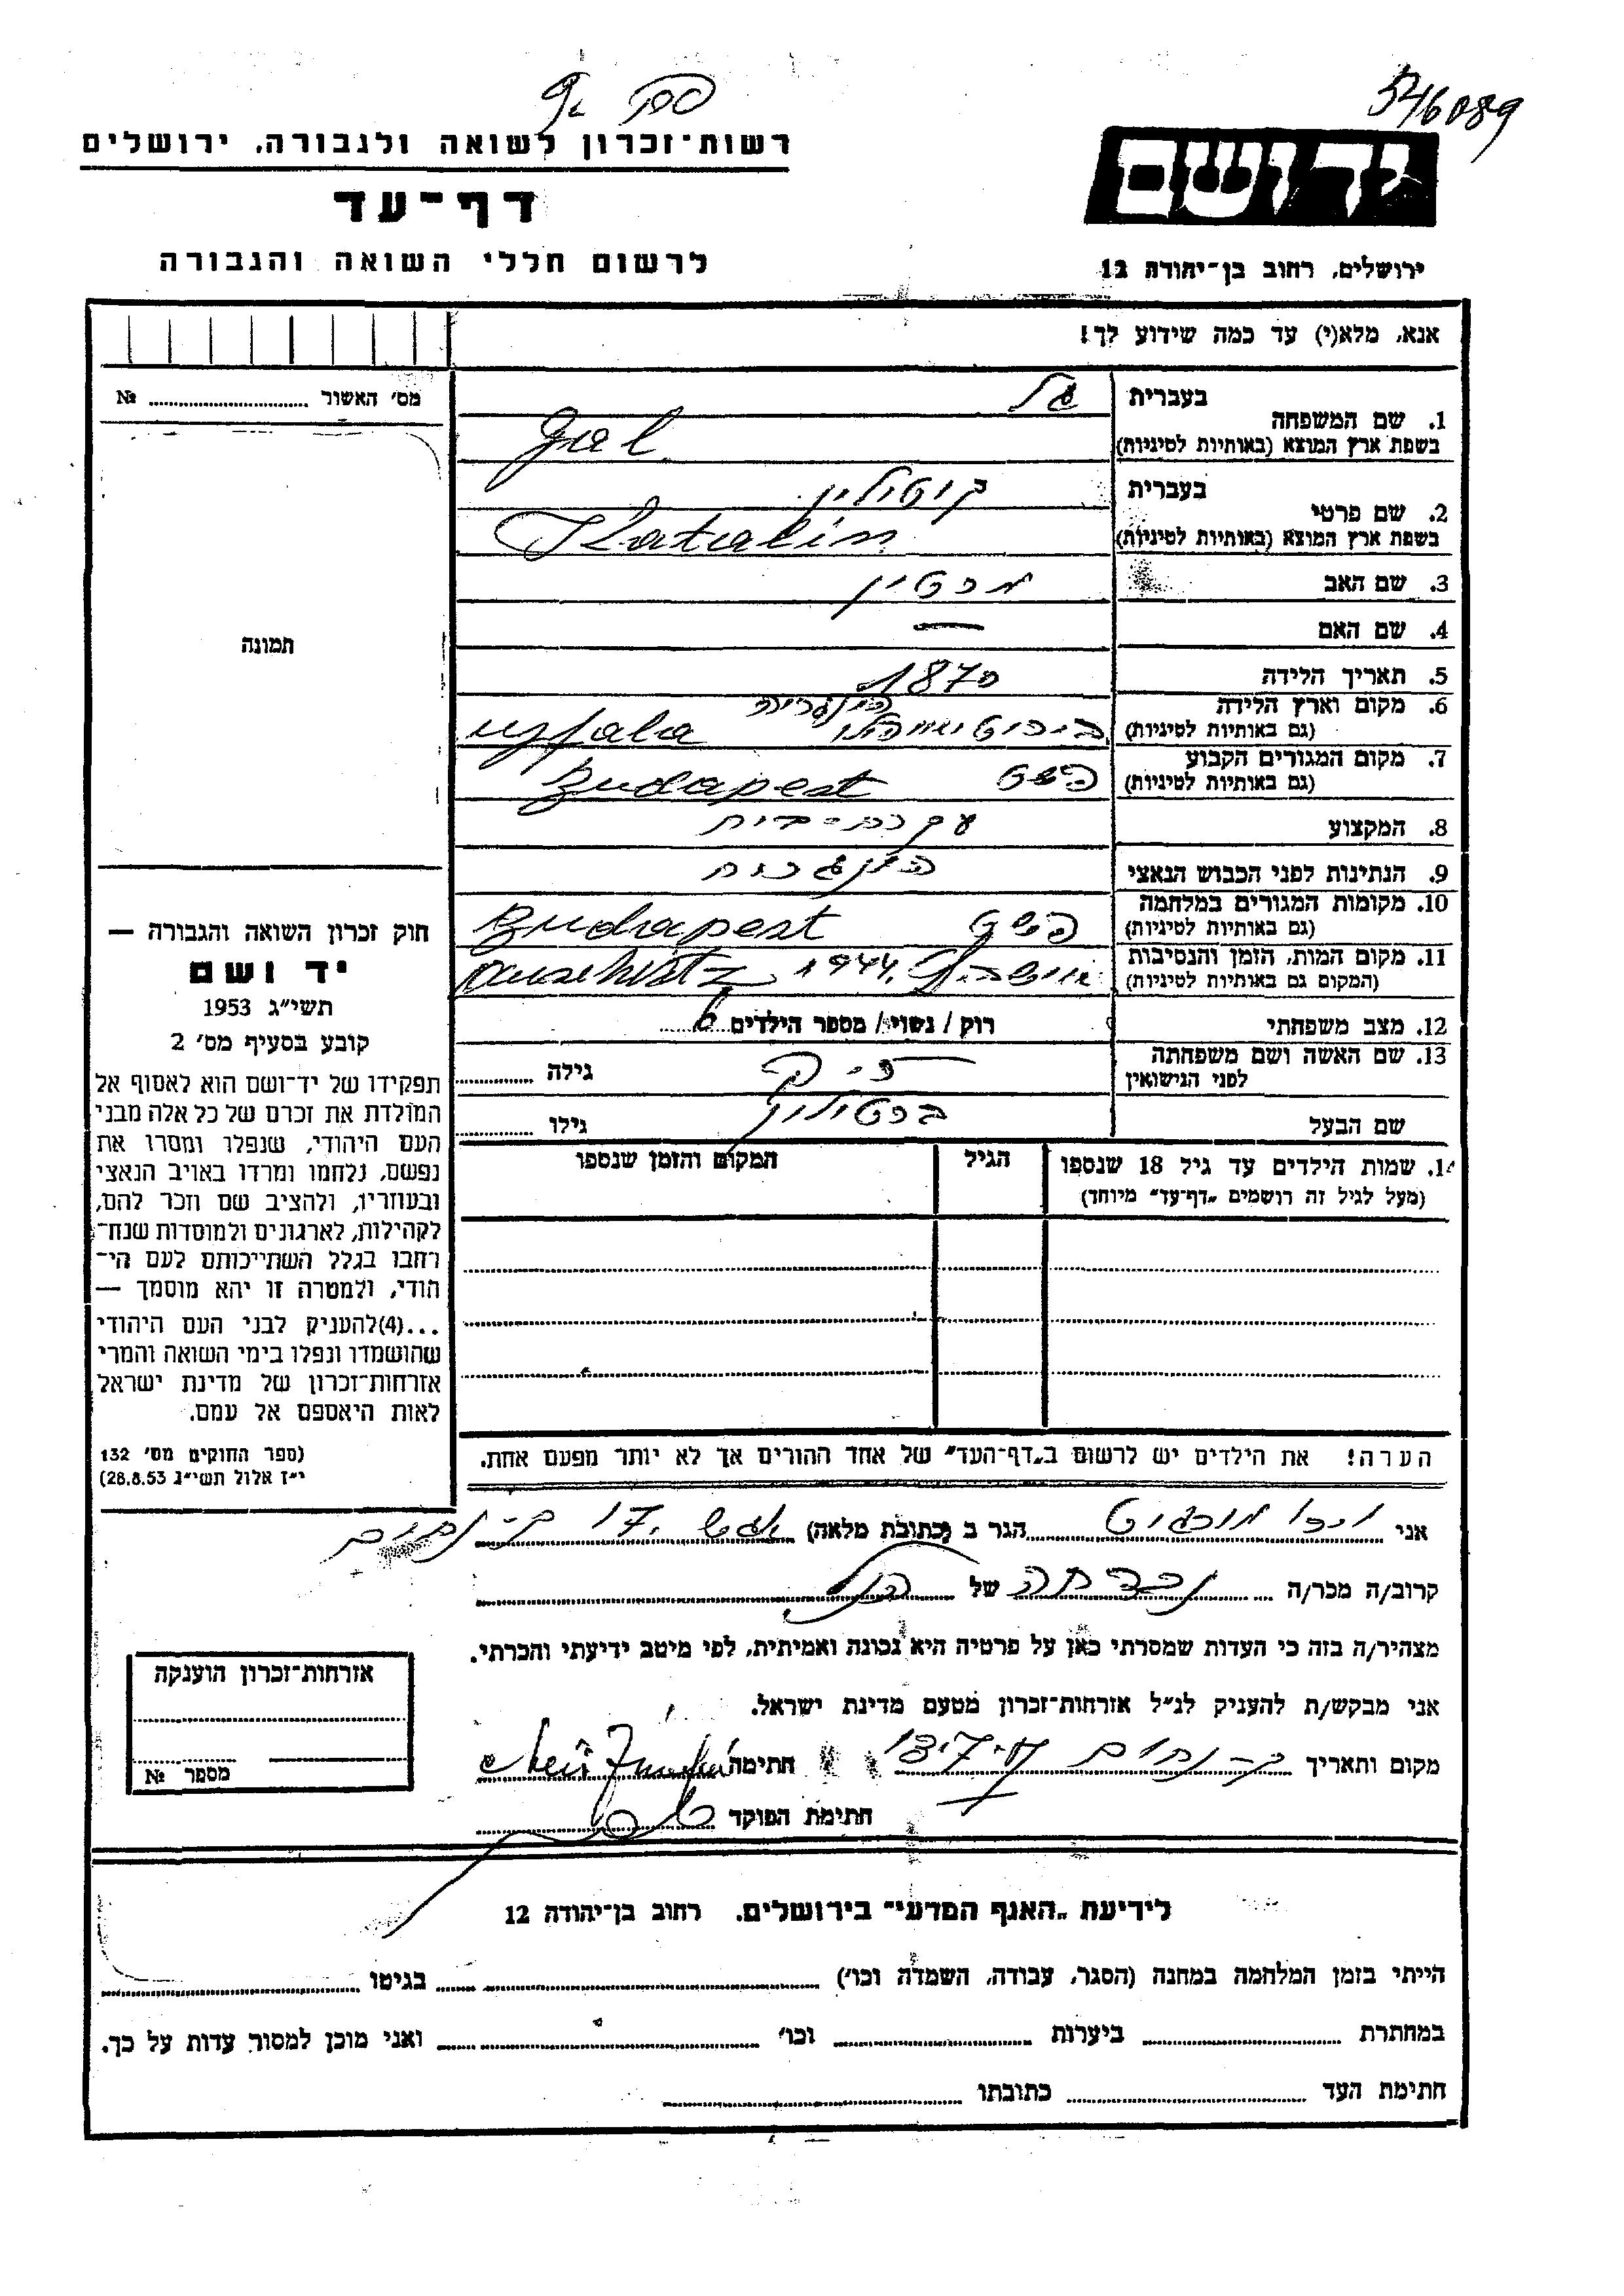 546089
רשות־זכרון לשואה ולגבורה, ירושלים
דף־עד
לרשום חללי השואה והגבורה
יד ושם
ירושלים, רחוב בן־יהודה 12
אנא, מלא(י) עד כמה שידוע לך!
מס' האשור № 
תמונה
חוק זכרון השואה והגבורה —
יד ושם
תשי״ג 1953
קובע בסעיף מס' 2
תפקידו של יד־ושם הוא לאסוף אל
המולדת את זכרם של כל אלה מבני
העם היהודי, שנפלו ומסרו את
נפשם, נלחמו ומרדו באויב הנאצי
ובעוזריו, ולהציב שם וזכר להם,
לקהילות, לארגונים ולמוסדות שנח־
רבו בגלל השתייכותם לעם הי־
הודי, ולמטרה זו יהא מוסמך —
...(4) להעניק לבני העם היהודי
שהושמדו ונפלו בימי השואה והמרי
אזרחות־זכרון של מדינת ישראל
לאות היאספם אל עמם.
(ספר החוקים מס' 132
י״ז אלול תשי״ג 28.8.53)
בעברית גל
1. שם המשפחה
בשפת ארץ המוצא (באותיות לטיניות) Gal
בעברית קטולין
2. שם פרטי
בשפת ארץ המוצא (באותיות לטיניות) Katalin
3. שם האב מרטין
4. שם האם —
5. תאריך הלידה 1870
6. מקום וארץ הלידה הונגריה
(גם באותיות לטיניות) ujfalu
7. מקום המגורים הקבוע פשט
(גם באותיות לטיניות) Budapest
8. המקצוע עקרת-בית
9. הנתינות לפני הכבוש הנאצי הונגרית
10. מקומות המגורים במלחמה פשט
(גם באותיות לטיניות) Budapest
11. מקום המות, הזמן והנסיבות
(המקום גם באותיות לטיניות) 1944. Auschwitz
12. מצב משפחתי רוק / נשוי / מספר הילדים 6
13. שם האשה ושם משפחתה
לפני הנישואין גילה
שם הבעל גילו
14. שמות הילדים עד גיל 18 שנספו
(מעל לגיל זה רושמים „דף־עד״ מיוחד)
הגיל
המקום והזמן שנספו
הערה! את הילדים יש לרשום ב„דף־העד״ של אחד ההורים אך לא יותר מפעם אחת.
אני הגר ב (כתובת מלאה)
קרוב/ה מכר/ה נכדתה של הנ״ל
מצהיר/ה בזה כי העדות שמסרתי כאן על פרטיה היא נכונה ואמיתית, לפי מיטב ידיעתי והכרתי.
אני מבקש/ת להעניק לנ״ל אזרחות־זכרון מטעם מדינת ישראל.
מקום ותאריך חתימה
חתימת הפוקד
אזרחות־זכרון הוענקה
מספר №
לידיעת „האגף המדעי״ בירושלים, רחוב בן־יהודה 12
הייתי בזמן המלחמה במחנה (הסגר, עבודה, השמדה וכו') בגיטו
במחתרת ביערות וכו' ואני מוכן למסור עדות על כך.
חתימת העד כתובתו